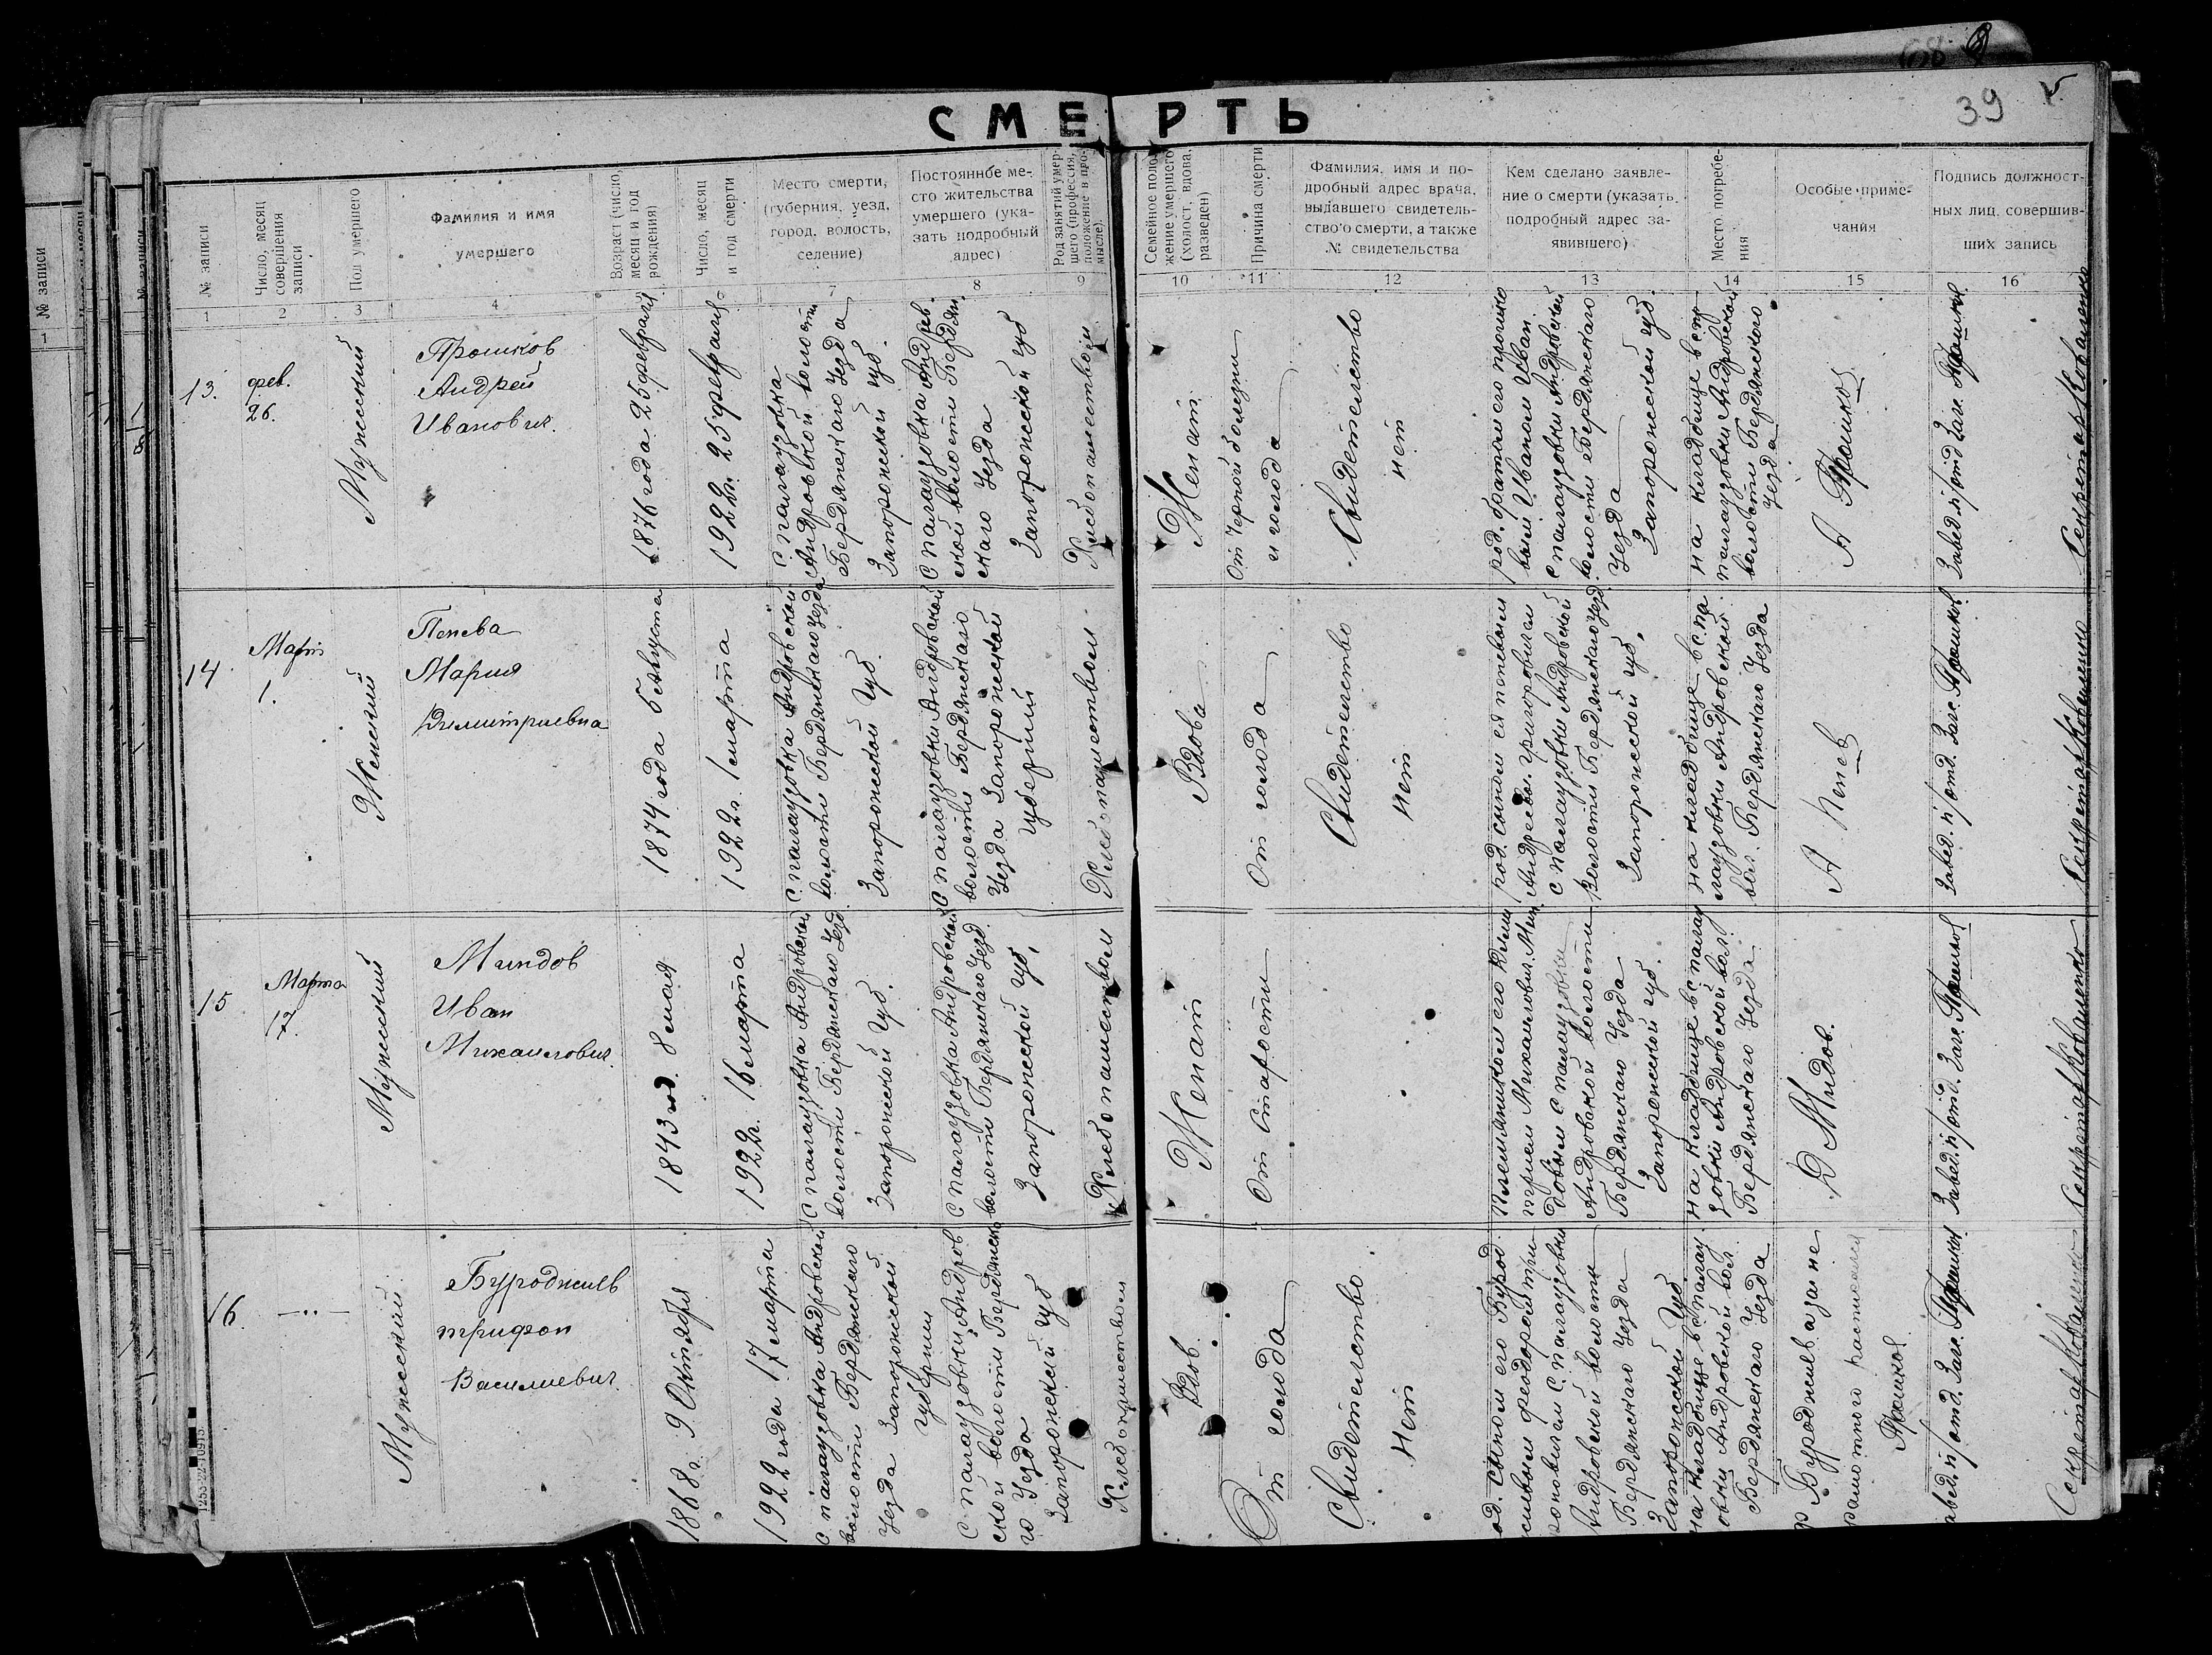 СМЕРТЬ
39
№ записи
Число, месяц
совершения
записи
Пол умершего
Фамилия и имя
умершего
Возраст (число,
месяц и год
рождения)
Число, месяц
и год смерти
Место смерти,
(губерния, уезд,
город, волость,
селение)
Постоянное ме-
сто жительства
умершего (ука-
зать подробный
адрес)
Род занятий умер-
шего (профессия,
положение в про-
мысле).
Семейное поло-
жение умершего
(холост, вдова,
разведен)
Причина смерти
Фамилия, имя и по-
дробный адрес врача,
выдавшего свидетель-
ство о смерти, а также
№ свидетельства
Кем сделано заявле-
ние о смерти (указать
подробный адрес за-
явившего)
Место погребе-
ния
Особые приме-
чания
Подпись должност-
ных лиц, совершив-
ших запись
1 2 3 4 7 8 9 10 11 12 13 14 15 16
13.
фев.
26.
Мужеский
Прошков
Андрей
Иванович.
1876 года 25 февраля
1922г. 25 февраля
с палаузовка
Андровской волости
Бердянского Уезда
Запорожской губ.
с палаузовка Андров
ской волости Бердян
скаго Уезда
Запорожской губ
Хлебопашеством
Женат
От Черной болезни
и голода
Свидетельство
нет
род. братом его прошко
вым Иваном Иван.
с палаузовки Андровской
волости Бердянскаго
Уезда
Запорожской губ.
на кладбище в с. п
палаузовки Андровской
волости Бердянского
Уезда
А Прошков
Завед. п/отд. Загс. Прошков
Секретарь Коваленко
14.
Март
1.
Женский
Пенева
Мария
Димитриевна
1874 года 6 Августа
1922г. 1 марта
с палаузовка Андровской
волости Бердянскаго Уезда
Запорожской Губ.
с палаузовки Андровской
волости Бердянскаго
Уезда Запорожской
губерний
Хлебопашеством
Вдова
От голода
Свидетельство
нет
род. сыном ея пеневым
Андреем Григоровичем
с палаузовки Андровской
волости Бердянскаго Уезд.
Запорожской губ.
на кладбище в с. па
лаузовки Андровской
вол. Бердянскаго Уезда
А Пенев
Завед. п/отд. Загс. Прошков
Секретарь Коваленко
15
Марта
17.
Мужеский
Миндов
Иван
Михаилович.
1843 год. 8 мая
1922г. 16 марта
с палаузовка Андровской
волости Бердянскаго Уезд.
Запорожской Губ.
с палаузовка Андровской
волости Бердянскаго Уезд.
Запорожской губ,
Хлебопашеством
Женат
От Старости
Племянником его Дими
трием Михаиловичем Мин
довым с палаузовки
Андровской волости
Бердянскаго Уезда
Запорожской губ.
на кладбище в с палау
зовки Андровской вол.
Бердянскаго Уезда
Д Мидов.
Завед. п/отд. Загс. Прошков
Секретарь Коваленко
16.
— " —
Мужеский
Буроджиев
трифон
Василиевич.
1868г. 9 Октября
1922 года 17 марта
с палаузовка Андровской
волости Бердянскаго
Уезда Запорожской
губернии
с палаузовки Андров
ской волости Бердянско
го Уезда
Запорожской губ
Хлебопашеством
Вдов.
От голода
Свидетельство
Нет
од. сыном его Бурод
жиевым федором три
фоновичем с. палаузовки
Андровской волости
Бердянскаго Уезда
Запорожской Губ.
на кладбище в с палау
зовки Андровской вол.
Бердянскаго Уезда
Буроджиев а за не
грамотного расписался
Прошков
Завед. п/отд. Загс. Прошков
Секретарь Коваленко